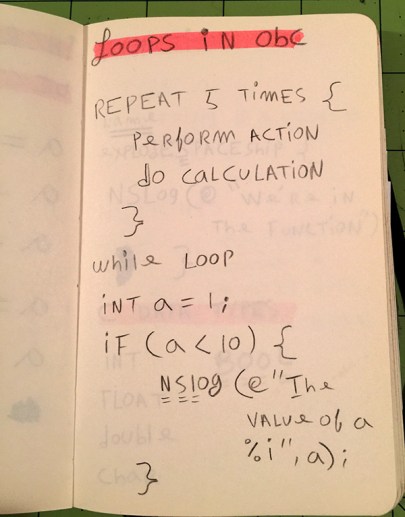 LOOPS iN ObC
REPEAT 5 TIMES {
PERFORM ACTION
do CALCULATION
}
while LOOP
INT a = 1;
iF (a < 10) {
NSlog (@"The
VALUE of a
%i", a);
}